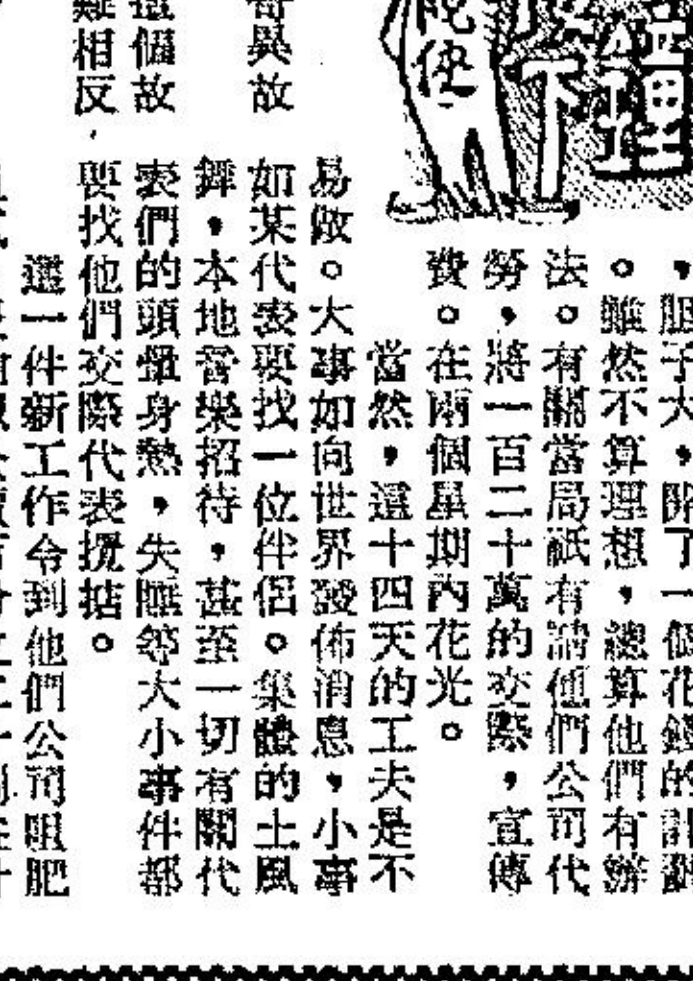 鐘
理
下
院使
，胆子大，開了一個花錢的計劃
。雖然不算理想，總算他們有辦
法。有關當局祇有請他們公司代
勞，將一百二十萬的交際，宣傳
費。在兩個星期內花光。
當然，這十四天的工夫是不
易做。大事如向世界發佈消息，小事
如某代表要找一位伴侶。集體的土風
舞，本地音樂招待，甚至一切有關代
表們的頭暈身熱，失眠等大小事件都
要找他們交際代表攪掂。
這一件新工作令到他們公司咀肥
奇異故
這個故
雖相反，